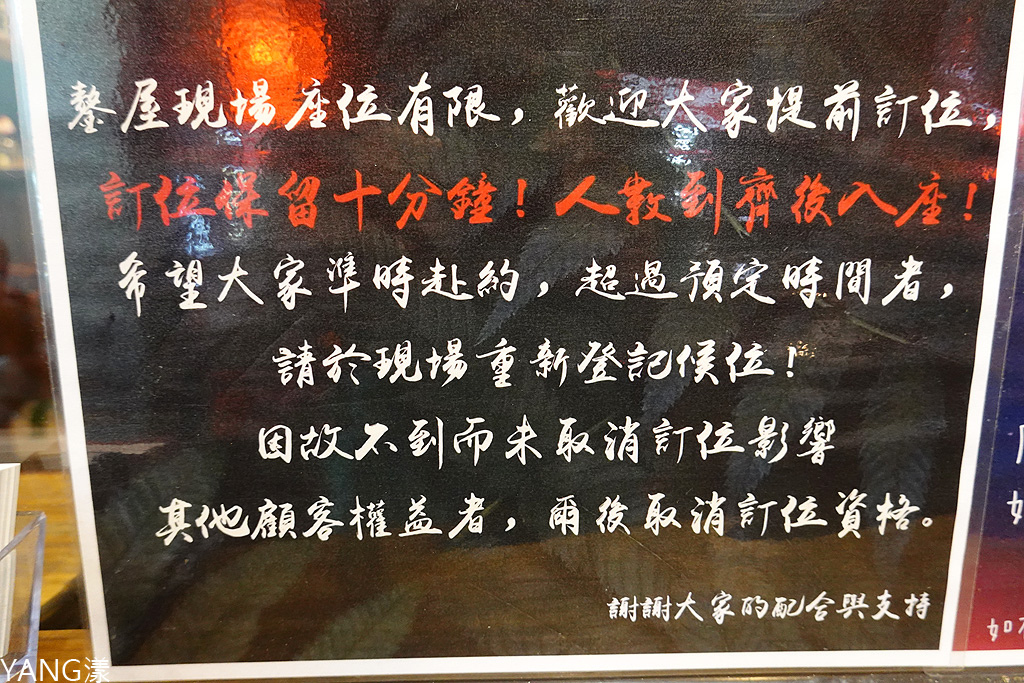 鏊屋現場座位有限，歡迎大家提前訂位，
訂位保留十分鐘！人數到齊後入座！
希望大家準時赴約，超過預定時間者，
請於現場重新登記候位！
因故不到而未取消訂位影響
其他顧客權益者，爾後取消訂位資格。
謝謝大家的配合與支持
如
YANG漾